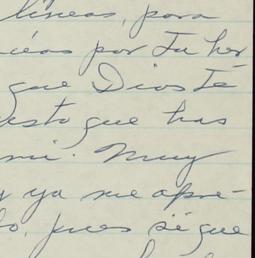 líneas, para
por tu her
que Dios te
esto que has
mi. Muy
y ya me apre-
o, pues sé que